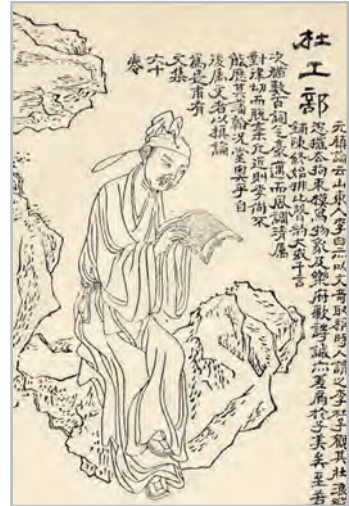 杜工部
元稹論云山東人李白亦以文奇取稱時人謂之李杜予觀其壯浪縱
恣擺去拘束模寫物象及樂府歌詩誠亦差肩於子美矣至若
鋪陳終始排比聲韻大或千言
次猶數百詞气豪邁而風調清屬
對律切而脫棄凡近則李尚不
能歷其藩翰況堂奧乎自
後屬文者以稹論
為是甫有
文集
六十
卷